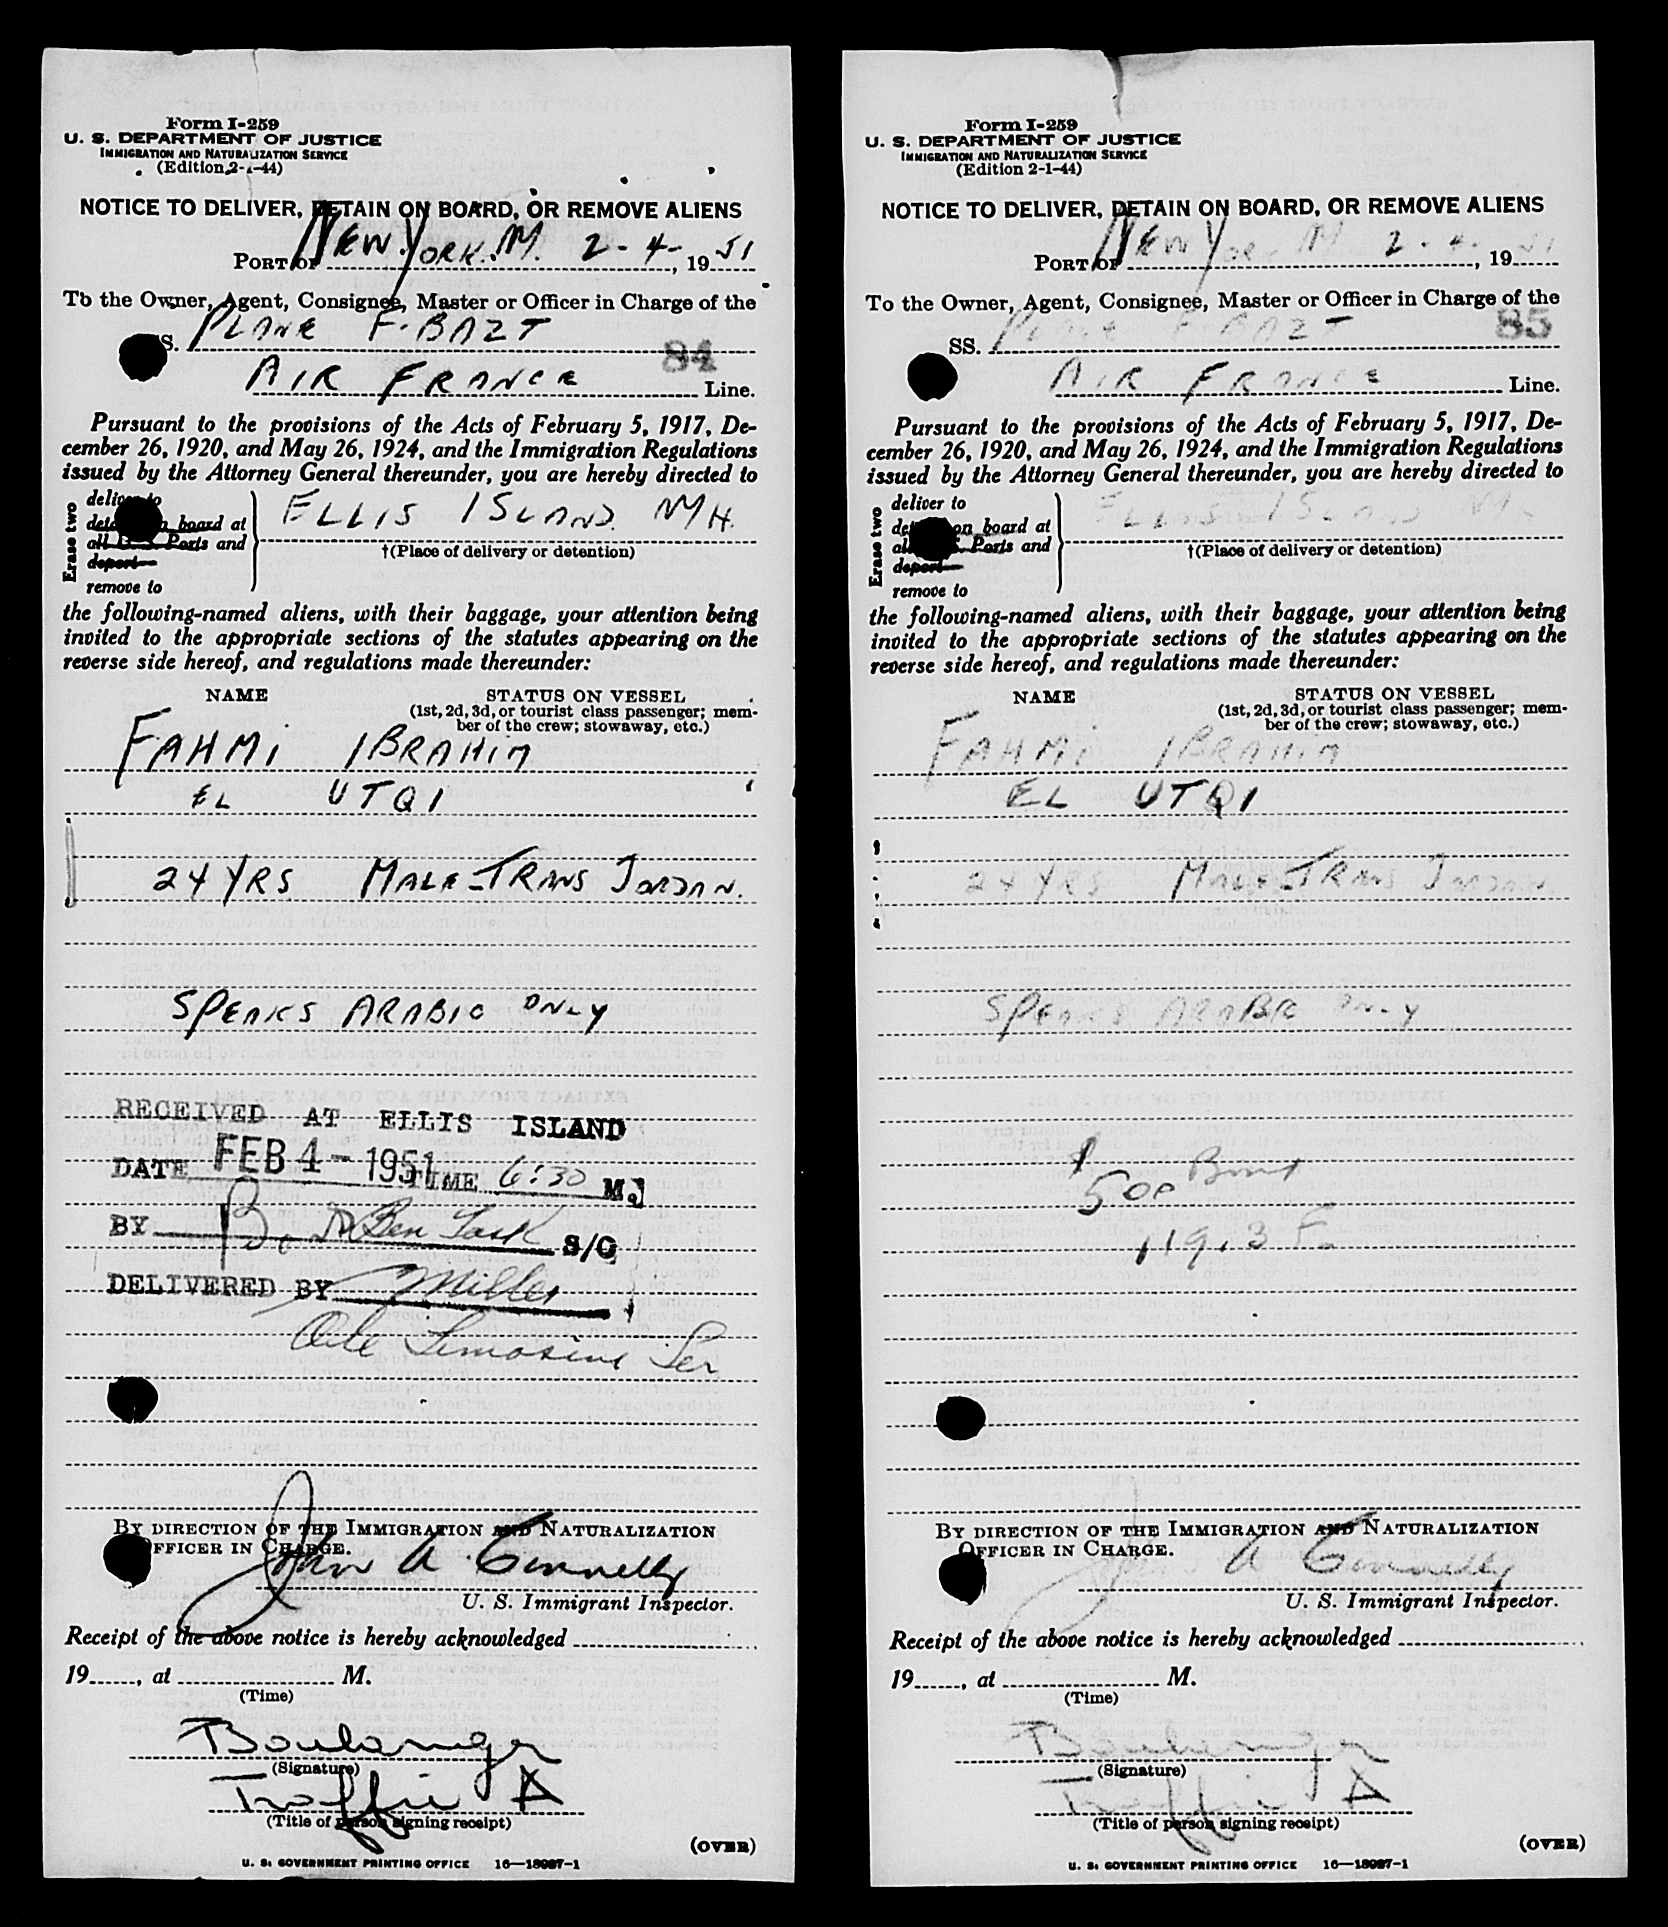 Form I-259
U. S. DEPARTMENT OF JUSTICE
IMMIGRATION AND NATURALIZATION SERVICE
(Edition 2-1-44)
NOTICE TO DELIVER, DETAIN ON BOARD, OR REMOVE ALIENS
PORT OF NEW YORK. 2-4-, 1951
To the Owner, Agent, Consignee, Master or Officer in Charge of the
SS. PLANE F-BAZT
84
AIR FRANCE Line.
Pursuant to the provisions of the Acts of February 5, 1917, De-
cember 26, 1920, and May 26, 1924, and the Immigration Regulations
issued by the Attorney General thereunder, you are hereby directed to
Erase two
deliver to
detain on board at
all U. S. Ports and
deport
remove to
ELLIS ISLAND. NYH.
†(Place of delivery or detention)
the following-named aliens, with their baggage, your attention being
invited to the appropriate sections of the statutes appearing on the
reverse side hereof, and regulations made thereunder:
NAME STATUS ON VESSEL
(1st, 2d, 3d, or tourist class passenger; mem-
ber of the crew; stowaway, etc.)
FAHMI IBRAHIM
EL UTQI
24 YRS MALE-TRANS JORDAN.
SPEAKS ARABIC ONLY
RECEIVED AT ELLIS ISLAND
DATE FEB 4-1951 TIME 6:30 M.
BY S/O
DELIVERED BY Miller
Limosine Ser
BY DIRECTION OF THE IMMIGRATION AND NATURALIZATION
OFFICER IN CHARGE.
John A. Connelly
U. S. Immigrant Inspector.
Receipt of the above notice is hereby acknowledged
19, at M.
(Time)
Boulanger
(Signature)
Traffic A
(Title of person signing receipt)
(OVER)
U. S. GOVERNMENT PRINTING OFFICE 16—18087-1
Form I-259
U. S. DEPARTMENT OF JUSTICE
IMMIGRATION AND NATURALIZATION SERVICE
(Edition 2-1-44)
NOTICE TO DELIVER, DETAIN ON BOARD, OR REMOVE ALIENS
PORT OF NEW YORK 2-4-, 1951
To the Owner, Agent, Consignee, Master or Officer in Charge of the
85
SS. PLANE F-BAZT
AIR FRANCE Line.
Pursuant to the provisions of the Acts of February 5, 1917, De-
cember 26, 1920, and May 26, 1924, and the Immigration Regulations
issued by the Attorney General thereunder, you are hereby directed to
Erase two
deliver to
detain on board at
all U. S. Ports and
deport
remove to
ELLIS ISLAND
†(Place of delivery or detention)
the following-named aliens, with their baggage, your attention being
invited to the appropriate sections of the statutes appearing on the
reverse side hereof, and regulations made thereunder:
NAME STATUS ON VESSEL
(1st, 2d, 3d, or tourist class passenger; mem-
ber of the crew; stowaway, etc.)
FAHMI IBRAHIM
EL UTQI
24 YRS MALE-TRANS JORDAN.
SPEAKS ARABIC ONLY
$500 Bond
BY DIRECTION OF THE IMMIGRATION AND NATURALIZATION
OFFICER IN CHARGE.
John A Connelly
U. S. Immigrant Inspector.
Receipt of the above notice is hereby acknowledged
19, at M.
(Time)
Boulanger
(Signature)
Traffic A
(Title of person signing receipt)
(OVER)
U. S. GOVERNMENT PRINTING OFFICE 16—18087-1